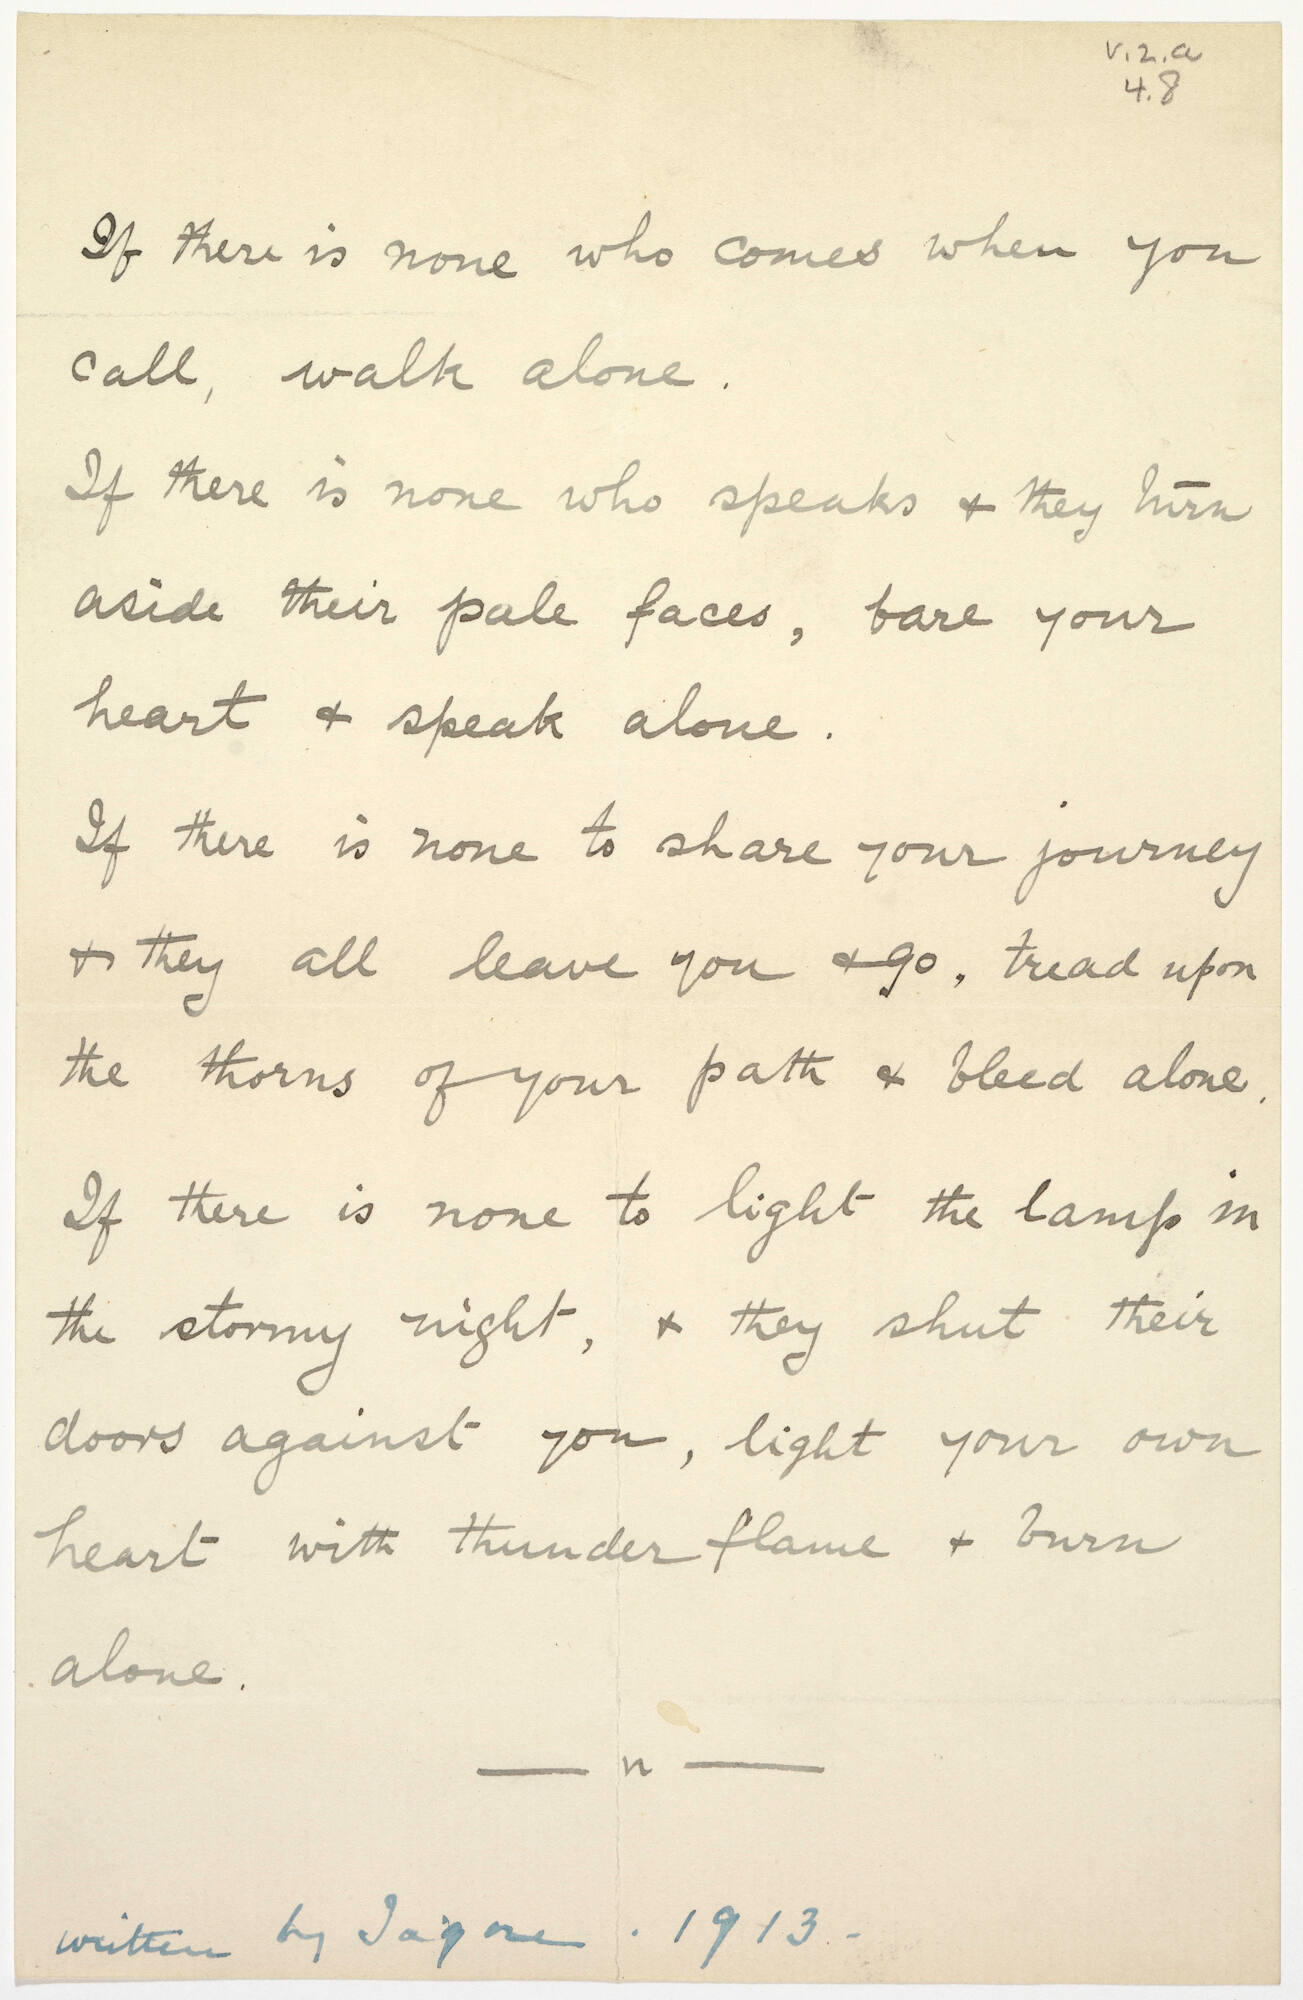 v.2.a
4.8
If there is none who comes when you
call, walk alone.
If there is none who speaks & they turn
aside their pale faces, bare your
heart & speak alone.
If there is none to share your journey
& they all leave you & go, tread upon
the thorns of your path & bleed alone.
If there is none to light the lamp in
the stormy night, & they shut their
doors against you, light your own
heart with thunder flame & burn
alone.
— n —
written by Tagore . 1913 -